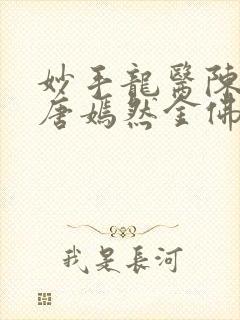 妙手龍醫陳
唐嫣然全佛
我是長河